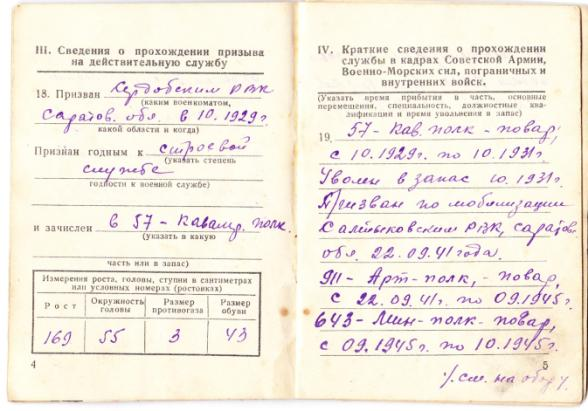 III. Сведения о прохождении призыва
на действительную службу
18. Призван Сердобским РВК
(каким военкоматом,
Саратов. обл. в 10.1929г.
какой области и когда)
Признан годным к строевой
(указать степень
службе
годности к военной службе)
и зачислен в 57-Кавалер. полк.
(указать в какую
часть или в запас)
Измерения роста, головы, ступни в сантиметрах
или условных номерах (ростовках)
Рост Окружность головы Размер противогаза Размер обуви
169 55 3 43
4
IV. Краткие сведения о прохождении
службы в кадрах Советской Армии,
Военно-Морских сил, пограничных и
внутренних войск.
(Указать время прибытия в часть, основные
перемещения, специальность, должностные ква-
лификации и время увольнения в запас)
19. 57-Кав. полк-повар,
с 10.1929г. по 10.1931г.
Уволен в запас 10.1931г.
Призван по мобилизации
Салтыковским РВК, саратов.
обл. 22.09.41 года.
911-Арт-полк,-повар,
с 22.09.41г. по 09.1945г.
643-Мин-полк-повар,
с 09.1945г. по 10.1945г.
5
см. на обор.